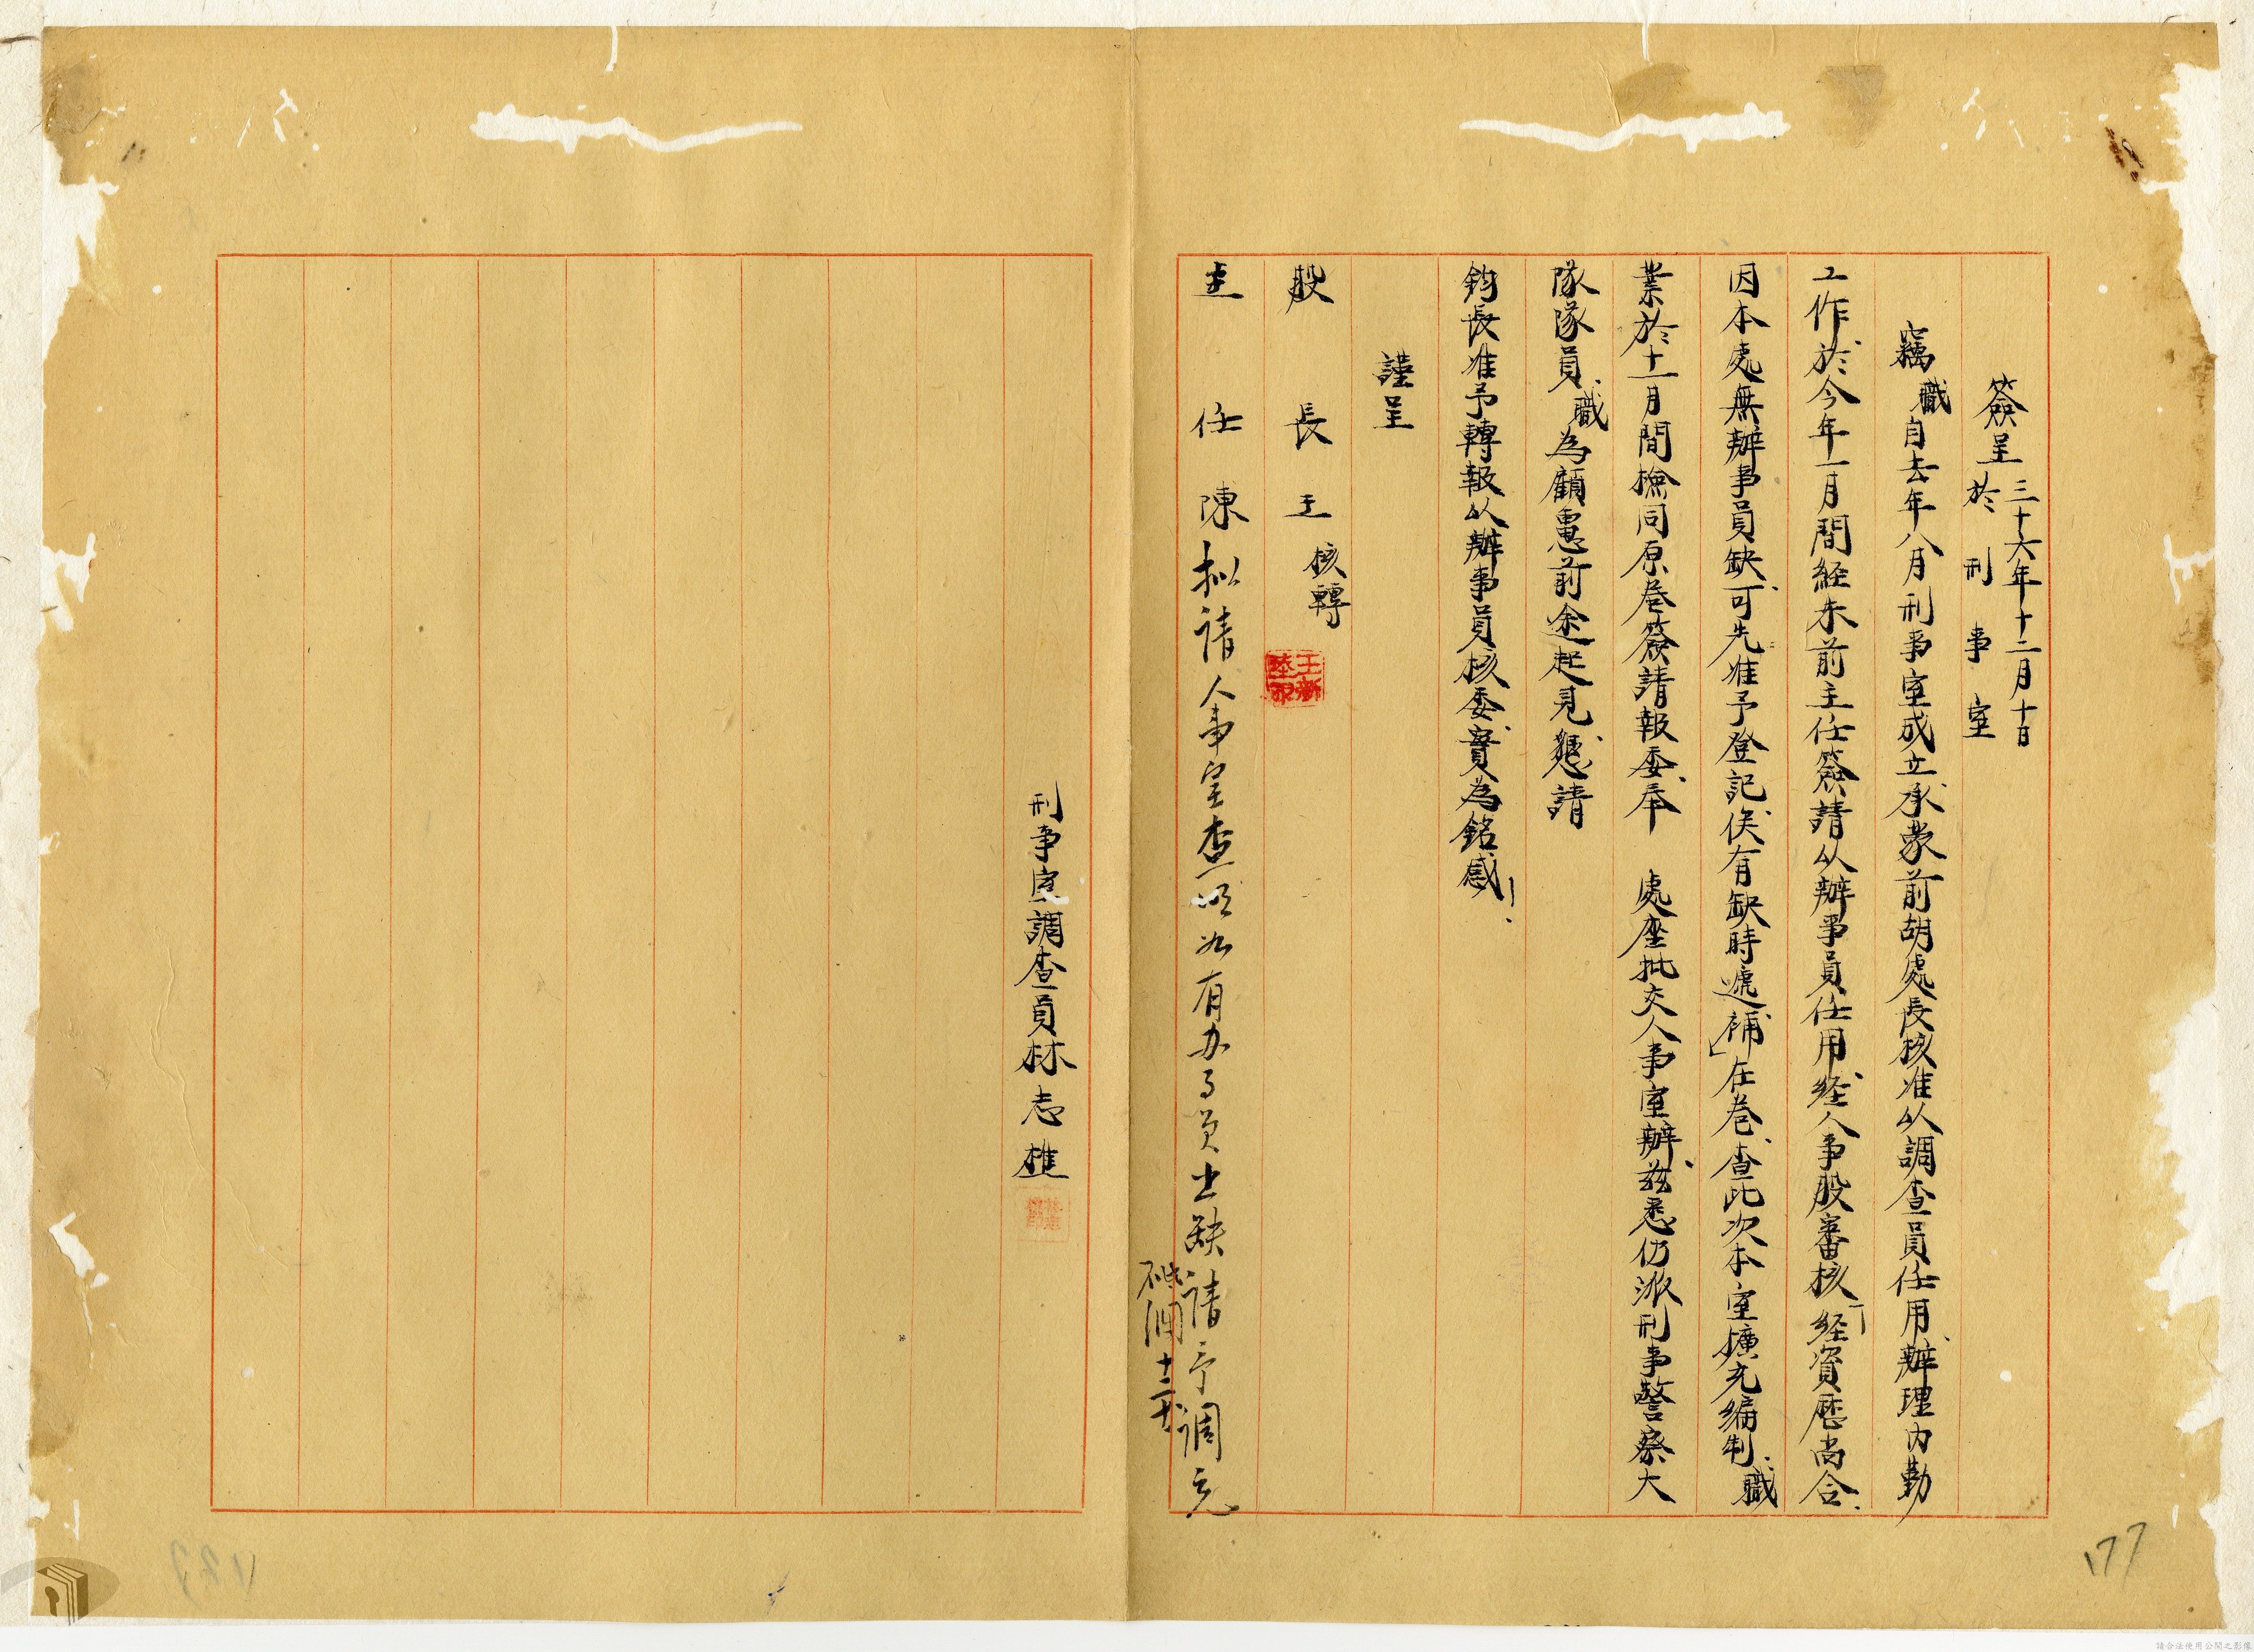 簽呈 三十六年十二月十日
於刑事室
竊職自去年八月刑事室成立、承蒙前胡處長核准以調查員任用、辦理內勤
工作、於今年一月間経朱前主任簽請以辦事員任用、経人事股審核「経資歷尚合、
因本處無辦事員缺、可先准予登記、俟有缺時遞補」在卷、查此次本室擴充編制、職
業於十一月間檢同原卷簽請報委、奉 處座批交人事室辦、茲悉仍派刑事警察大
隊隊員、職為顧慮前途起見、懇請
鈞長准予轉報以辦事員核委、實為銘感!
謹呈
股長王 核轉
主任陳
拟请人事室查明如有办事员出缺请予调充
十二、十
刑事室調查員林志雄
177
請合法使用公開之影像